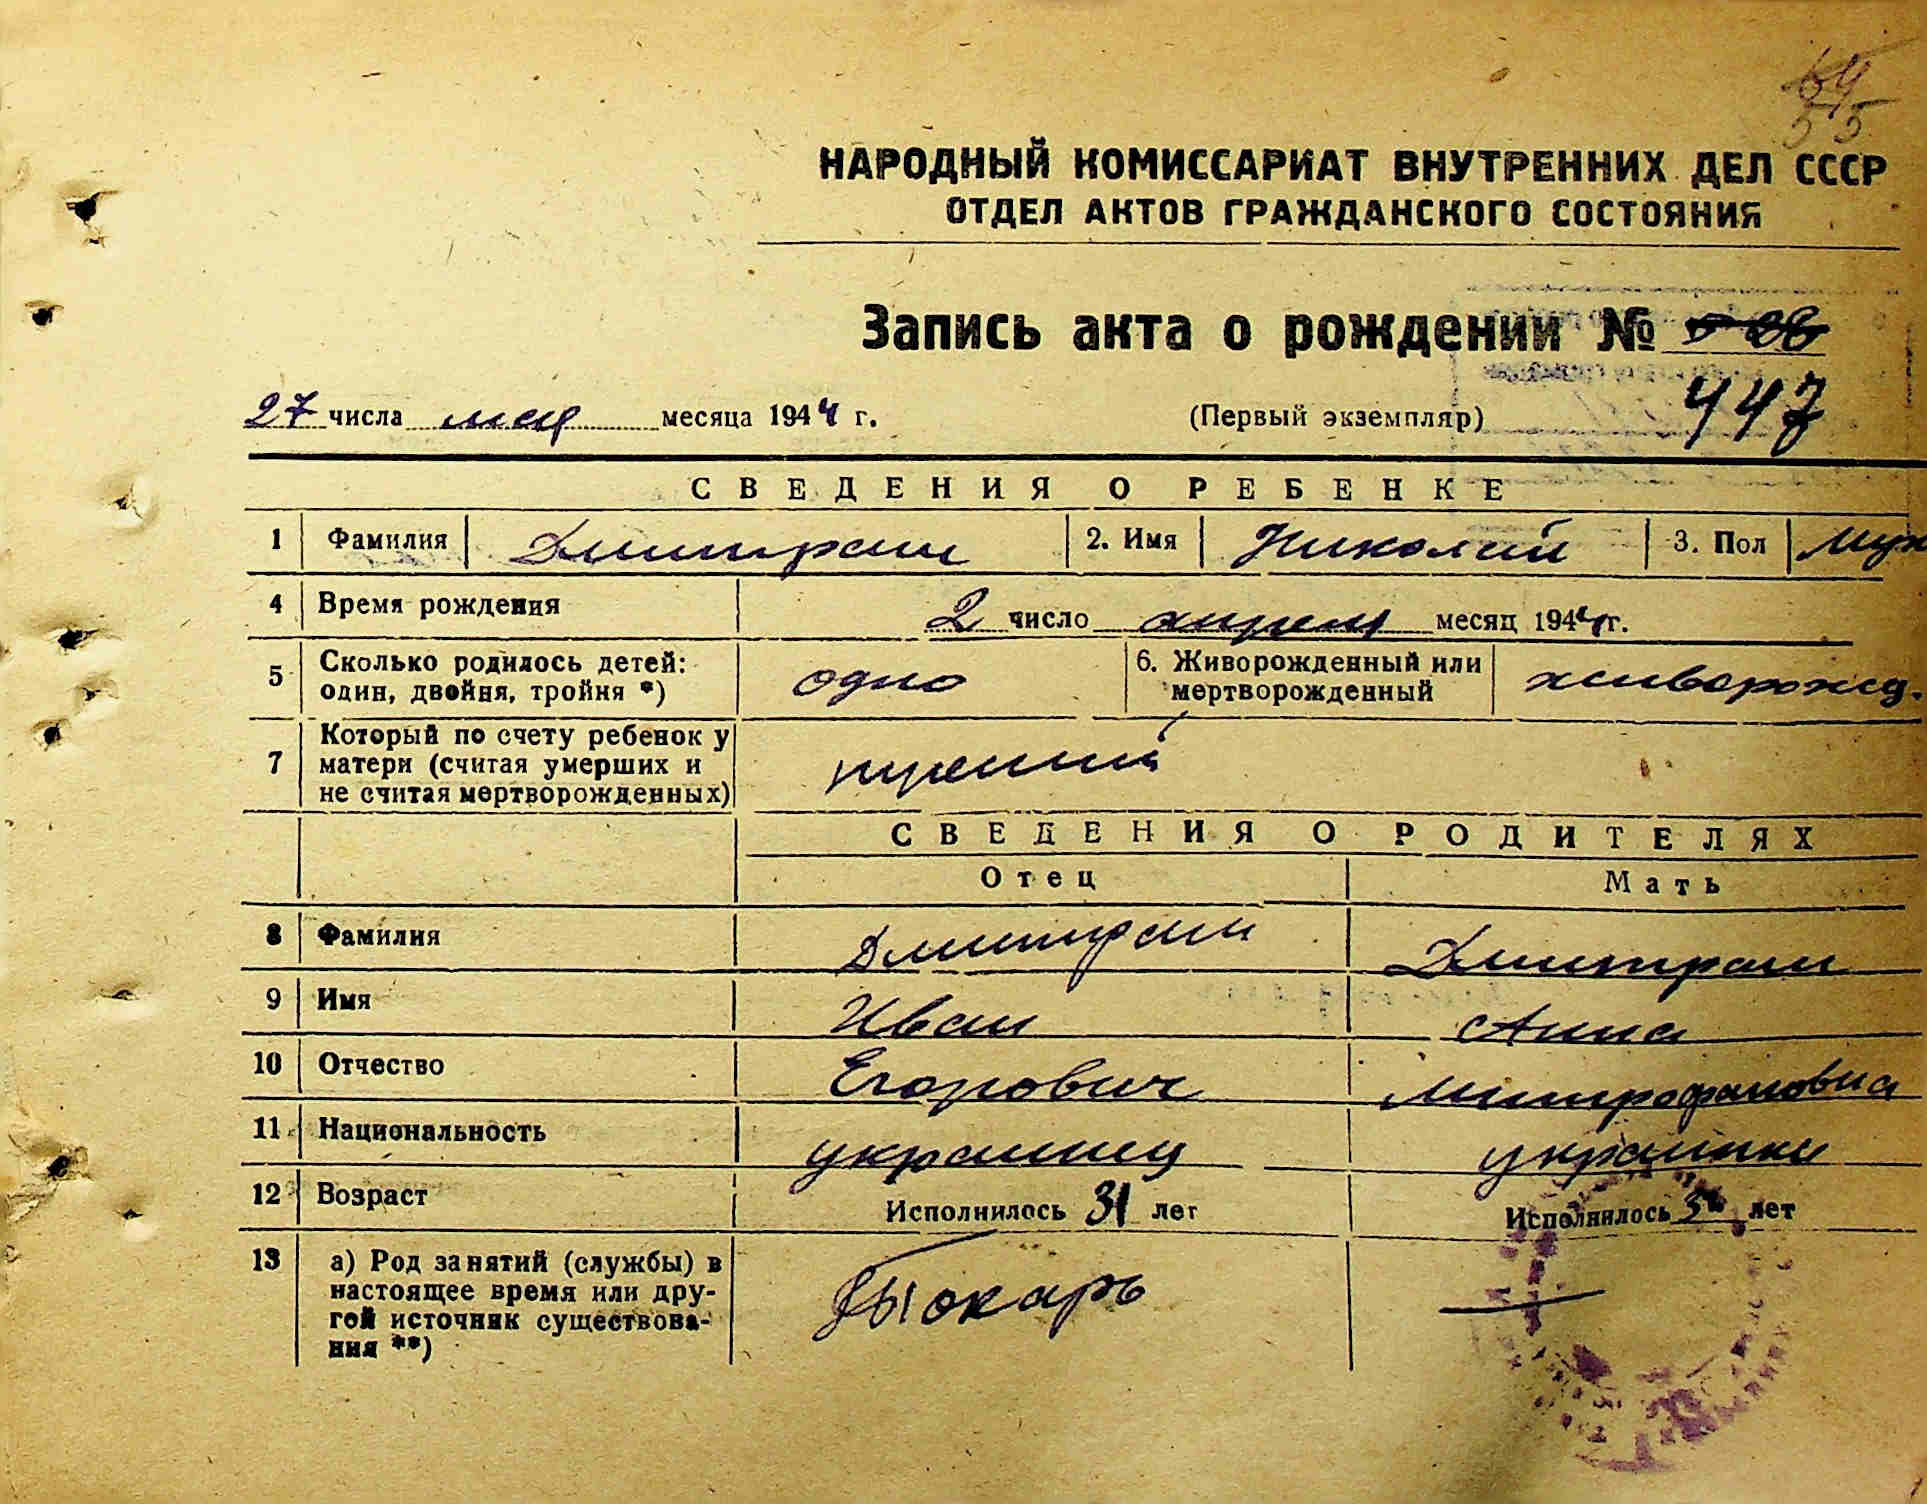 64
55
НАРОДНЫЙ КОМИССАРИАТ ВНУТРЕННИХ ДЕЛ СССР
ОТДЕЛ АКТОВ ГРАЖДАНСКОГО СОСТОЯНИЯ
Запись акта о рождении №
27 числа мая месяца 1944 г. (Первый экземпляр) 447
СВЕДЕНИЯ О РЕБЕНКЕ
1 Фамилия Димитраш 2. Имя Николай 3. Пол Муж
4 Время рождения 2 число апреля месяц 1944 г.
5 Сколько родилось детей: один, двойня, тройня *) одно 6. Живорожденный или мертворожденный живорожд.
7 Который по счету ребенок у матери (считая умерших и не считая мертворожденных) третий
СВЕДЕНИЯ О РОДИТЕЛЯХ
Отец Мать
8 Фамилия Димитраш Димитраш
9 Имя Иван Анна
10 Отчество Егорович Митрофановна
11 Национальность украинец украинка
12 Возраст Исполнилось 31 лет Исполнилось лет
13 а) Род занятий (службы) в
настоящее время или дру-
гой источник существова-
ния **)